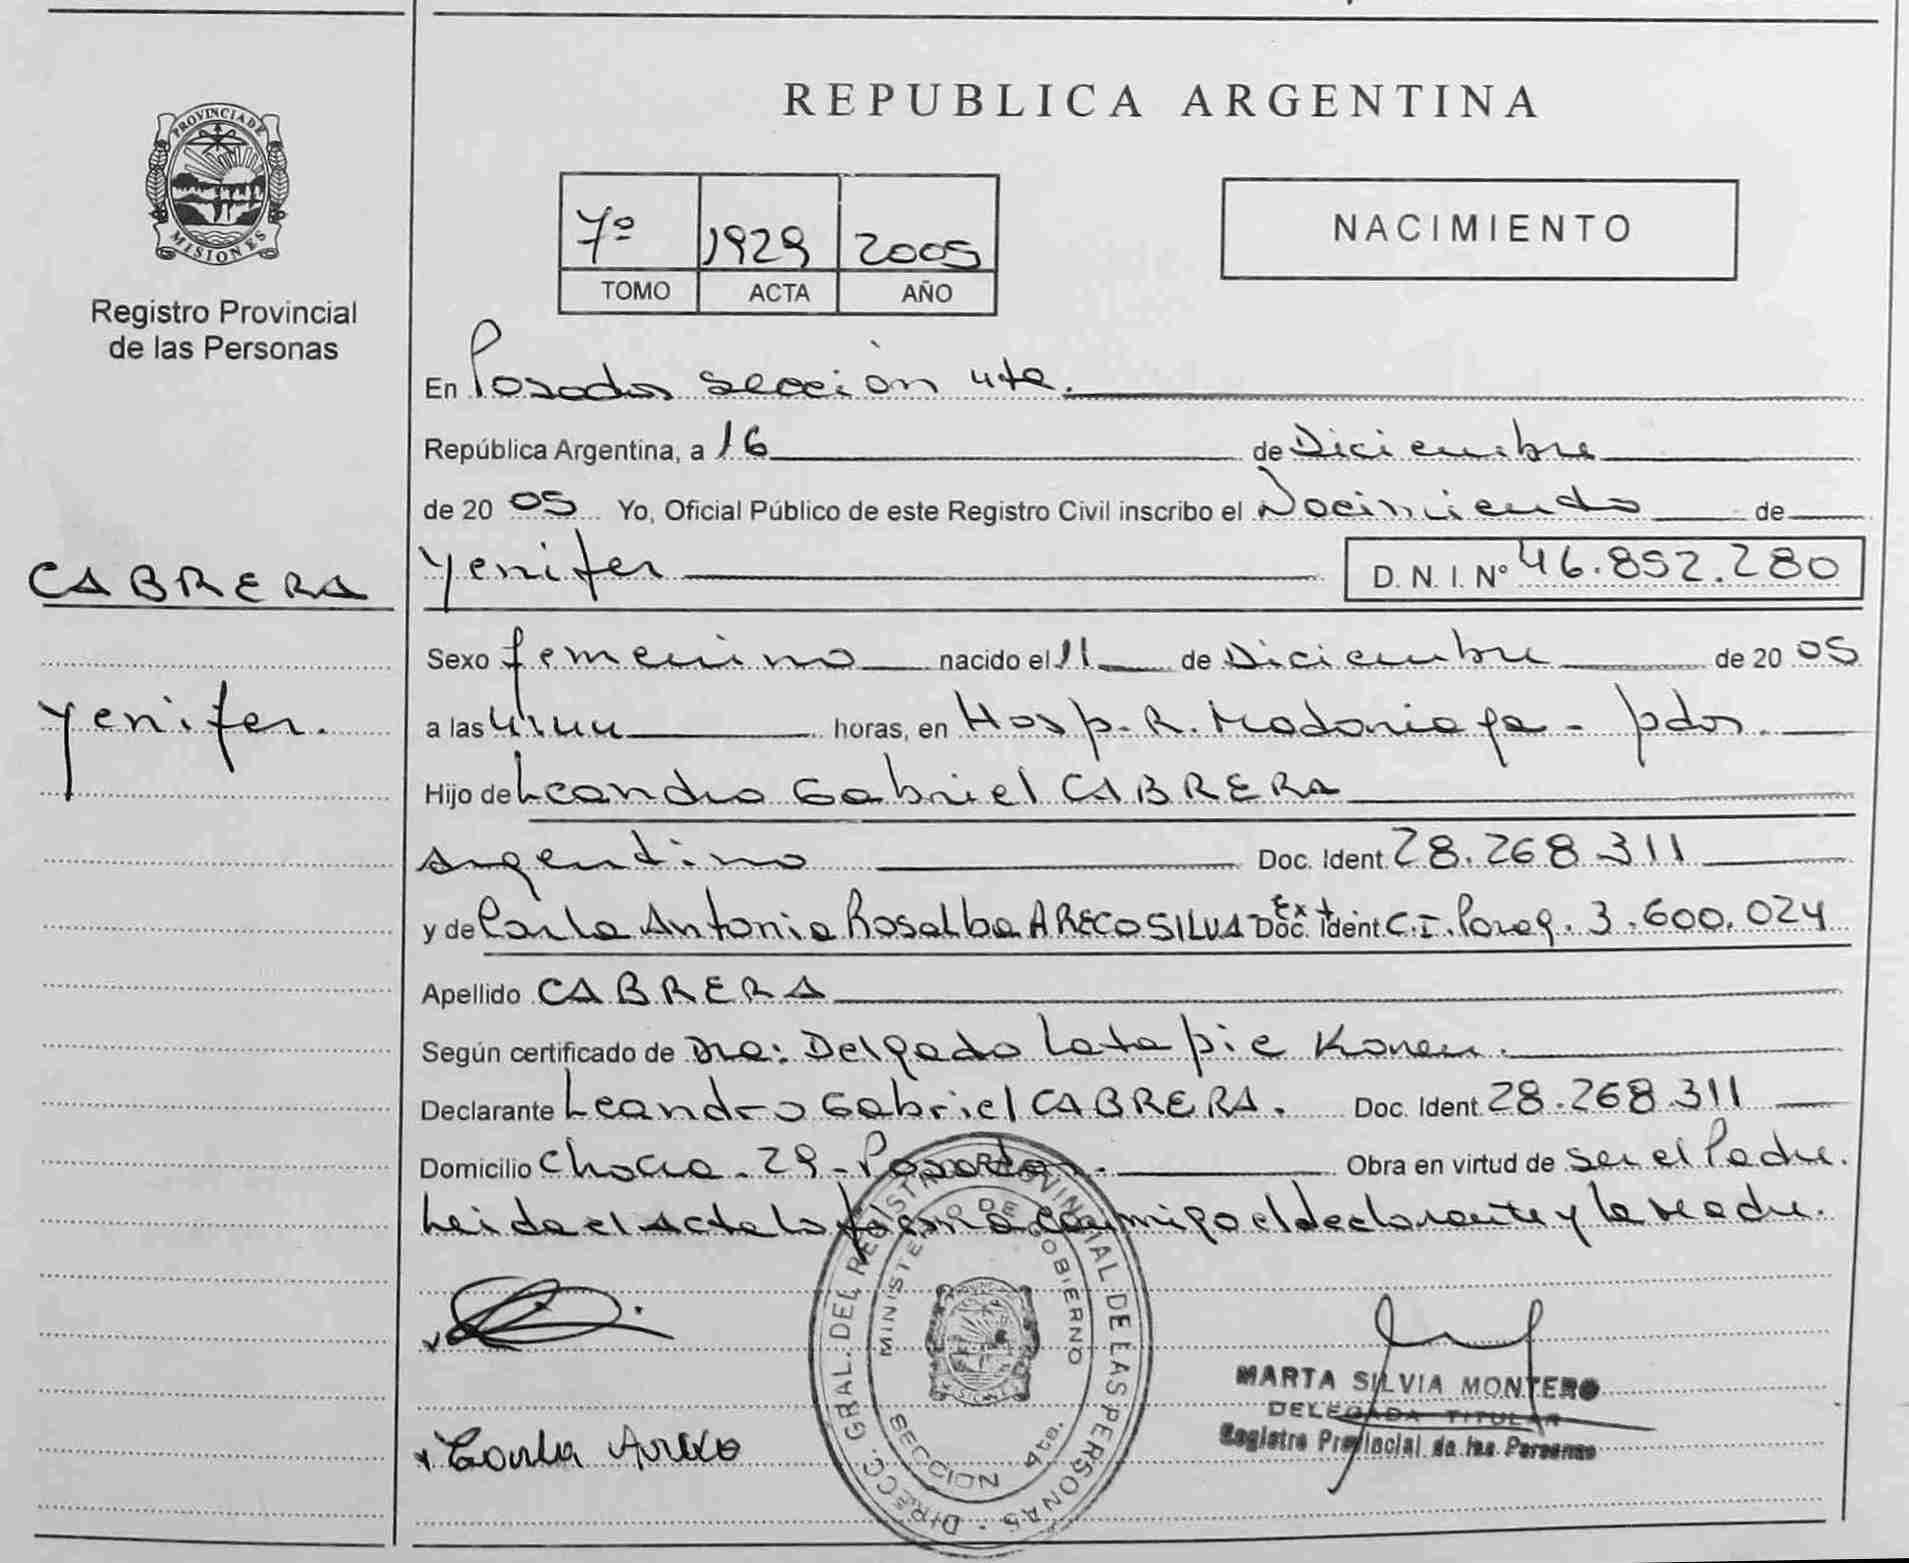 REPUBLICA ARGENTINA
PROVINCIA DE
MISIONES
Registro Provincial
de las Personas
7º 1929 2005
TOMO ACTA AÑO
NACIMIENTO
En Posadas sección 4ta.
República Argentina, a 16 de Diciembre
de 2005 Yo, Oficial Público de este Registro Civil inscribo el Nacimiento de
CABRERA
Yenifer.
Yenifer D. N. I. Nº 46.852.280
Sexo femenino nacido el 11 de Diciembre de 2005
a las 4:44 horas, en Hosp. R. Madariaga - pdas.
Hijo de Leandro Gabriel CABRERA
argentino Doc. Ident. 28.268.311
y de Carla Antonia Rosalba ARECO SILVA Ext Doc. Ident. C.I. Parag. 3.600.024
Apellido CABRERA
Según certificado de Dra: Delgado Latapie Karen.
Declarante Leandro Gabriel CABRERA. Doc. Ident. 28.268.311
Domicilio Chacra. 29 - Posadas. Obra en virtud de ser el Padre.
Leida el Acta la firma conmigo el declarante y la Madre.
DIRECC. GRAL. DEL REGISTRO PROVINCIAL DE LAS PERSONAS
MINISTERIO DE GOBIERNO
SECCION 4ta.
MARTA SILVIA MONTERO
DELEGADA TITULAR
Registro Provincial de las Personas
Carla Areco